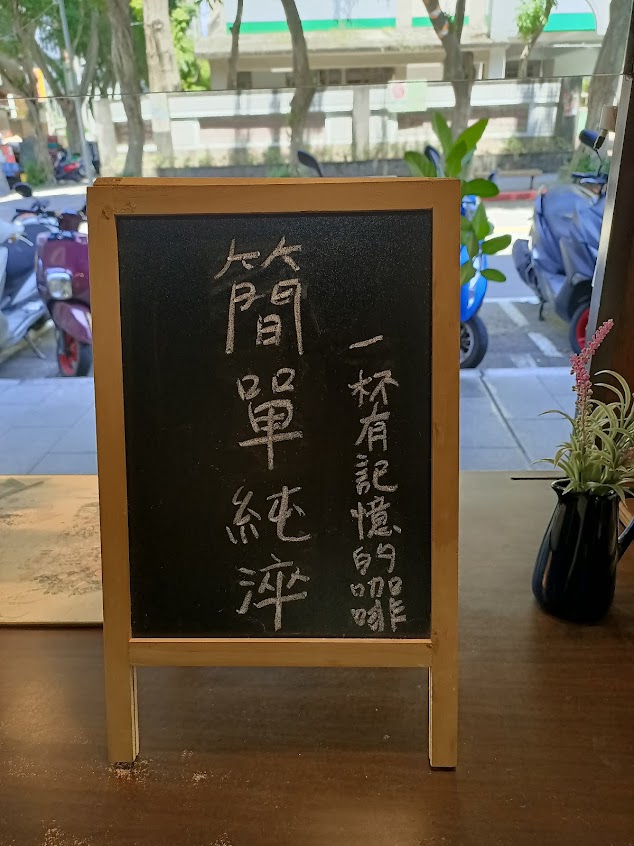 一杯有記憶的咖啡
簡單純淬